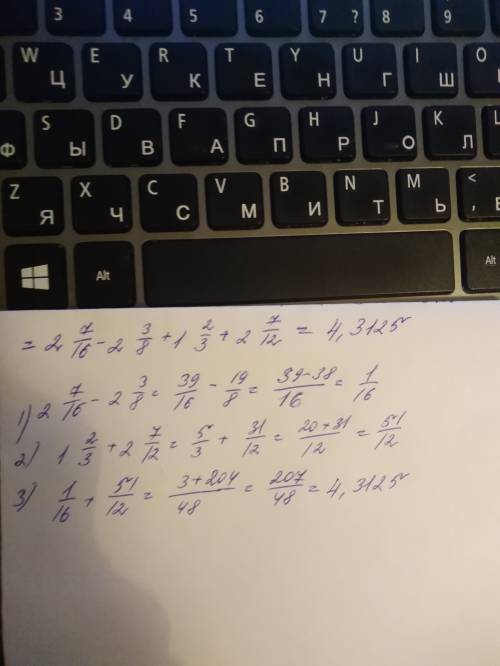 3 4 5 6 7 ? 8 8 9
W Ц E У R К T Е Y Н U Г I Ш O
Ф S Ы D В F А G П H Р J О K Л L
Z Я X Ч C С V М B И N Т M Ь < ,
Alt Alt
= 2 7/16 - 2 3/8 + 1 2/3 + 2 7/12 = 4,3125
1) 2 7/16 - 2 3/8 = 39/16 - 19/8 = 39-38/16 = 1/16
2) 1 2/3 + 2 7/12 = 5/3 + 31/12 = 20+31/12 = 51/12
3) 1/16 + 51/12 = 3+204/48 = 207/48 = 4,3125